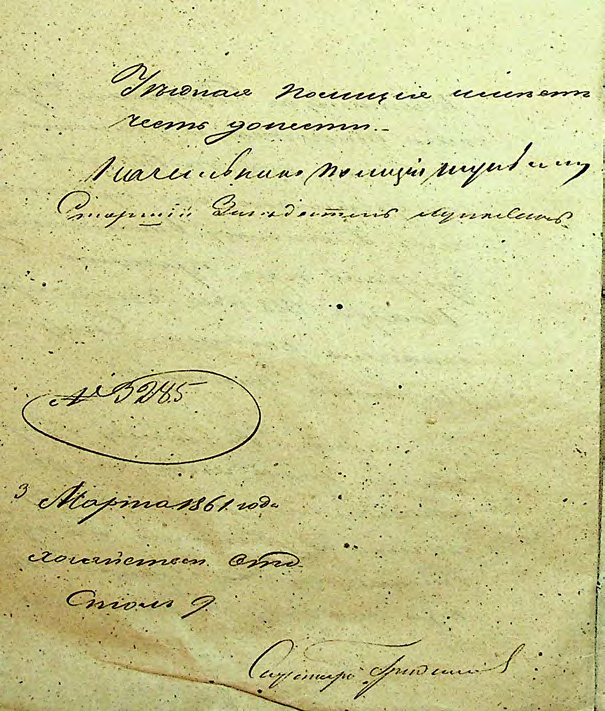 Уѣздная полиція имѣетъ
честь донести.
Начальникъ полиціи
Старшій Засѣдатель
№ 3285
3 Марта 1861 года
хозяйствен. Отд.
Столъ 9
Секретарь